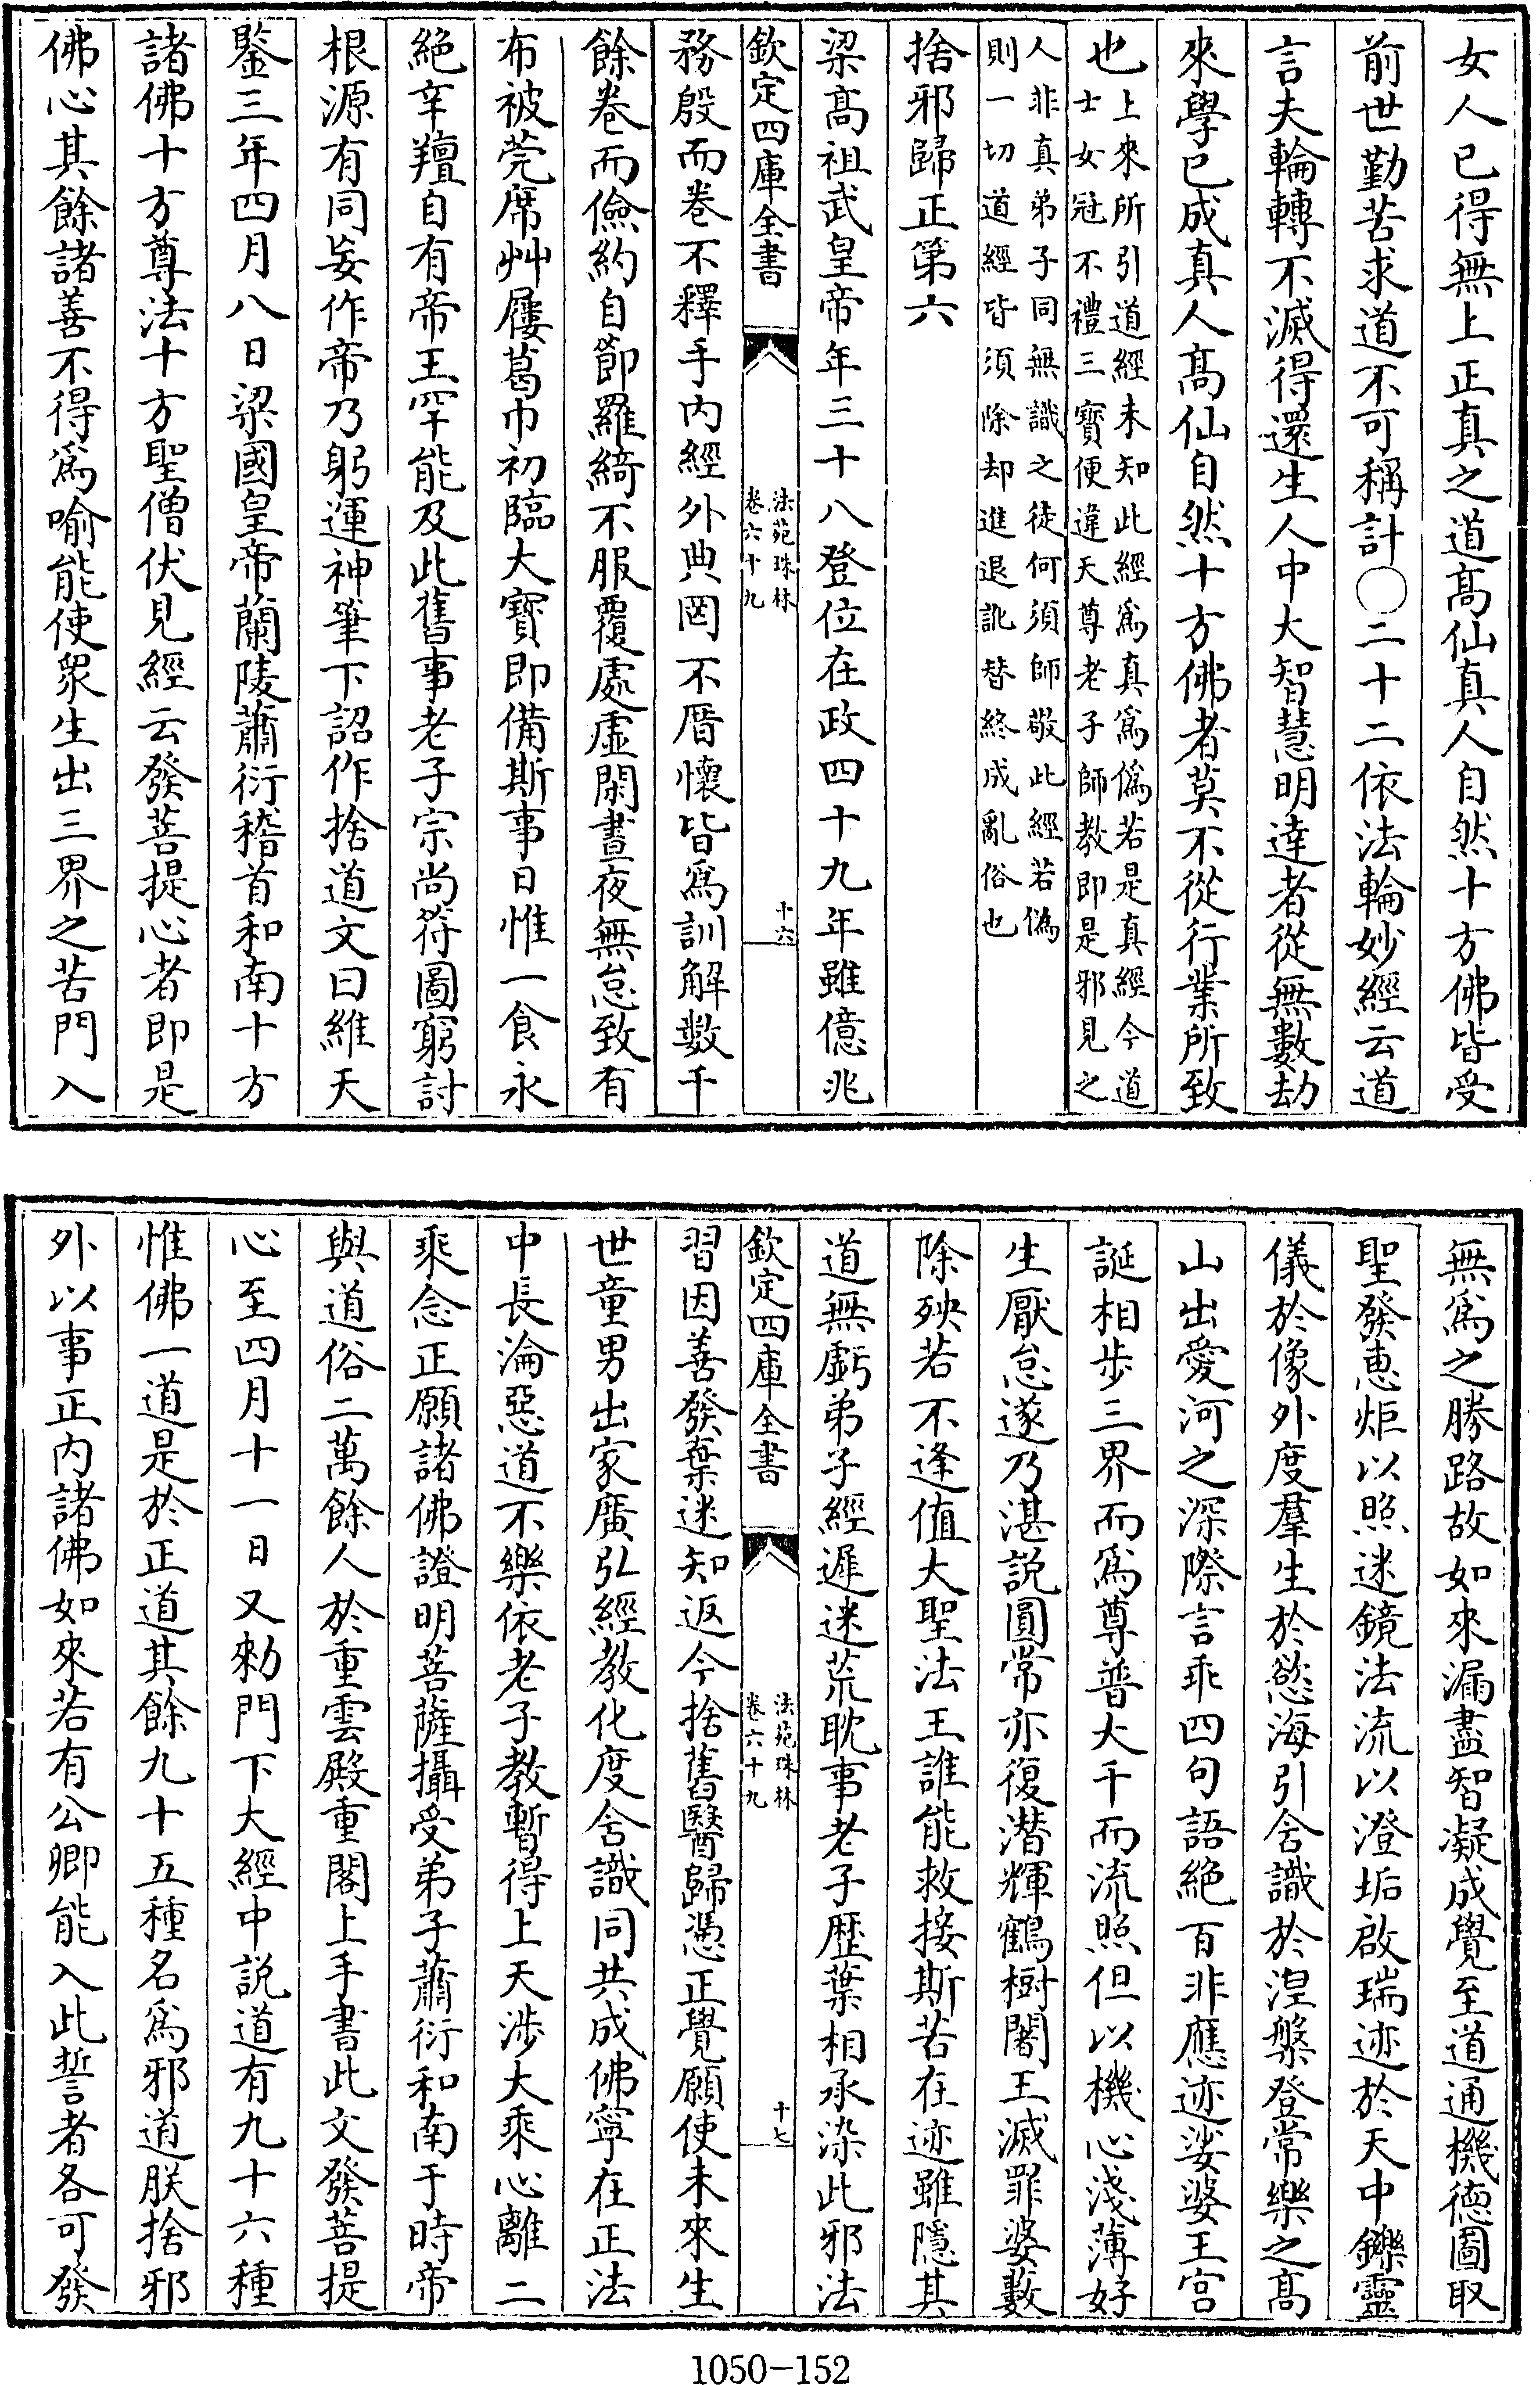 女人已得無上正真之道髙仙真人自然十方佛皆受
前世勤苦求道不可稱計○二十二依法輪妙經云道
言夫輪轉不滅得還生人中大智慧明達者從無數劫
來學已成真人髙仙自然十方佛者莫不從行業所致
也上來所引道經未知此經爲真爲僞若是真經今道
士女冠不禮三寶便違天尊老子師教即是邪見之
人非真弟子同無識之徒何須師敬此經若偽
則一切道經皆須除却進退訛替終成亂俗也
捨邪歸正第六
梁髙祖武皇帝年三十八登位在政四十九年雖億兆
欽定四庫全書
法苑珠林
卷六十九
十六
務殷而卷不釋手内經外典罔不厝懷皆爲訓解數千
餘卷而儉約自節羅綺不服覆處虛閑晝夜無怠致有
布被莞席艸屨葛巾初臨大寶即備斯事日惟一食永
絕辛羶自有帝王罕能及此舊事老子宗尚符圖窮討
根源有同妄作帝乃躬運神筆下詔作捨道文曰維天
鑒三年四月八日梁國皇帝蘭陵蕭衍稽首和南十方
諸佛十方尊法十方聖僧伏見經云發菩提心者即是
佛心其餘諸善不得爲喻能使衆生出三界之苦門入
無爲之勝路故如來漏盡智凝成覺至道通機德圓取
聖發惠炬以照迷鏡法流以澄垢啟瑞迹於天中鑠靈
儀於像外度羣生於慾海引含識於涅槃登常樂之髙
山出愛河之深際言乖四句語絕百非應迹娑婆王宫
誕相步三界而爲尊普大千而流照但以機心淺薄好
生厭怠遂乃湛説圓常亦復潜輝鶴樹闍王滅罪婆藪
除殃若不逢值大聖法王誰能救接斯苦在迹雖隱其
道無虧弟子經遲迷荒耽事老子歴葉相承染此邪法
欽定四庫全書
法苑珠林
卷六十九
十七
習因善發棄迷知返今捨舊醫歸憑正覺願使未來生
世童男出家廣弘經教化度含識同共成佛寧在正法
中長淪惡道不樂依老子教暫得上天涉大乘心離二
乘念正願諸佛證明菩薩攝受弟子蕭衍和南于時帝
與道俗二萬餘人於重雲殿重閣上手書此文發菩提
心至四月十一日又勑門下大經中説道有九十六種
惟佛一道是於正道其餘九十五種名爲邪道朕捨邪
外以事正内諸佛如來若有公卿能入此誓者各可發
1050-152